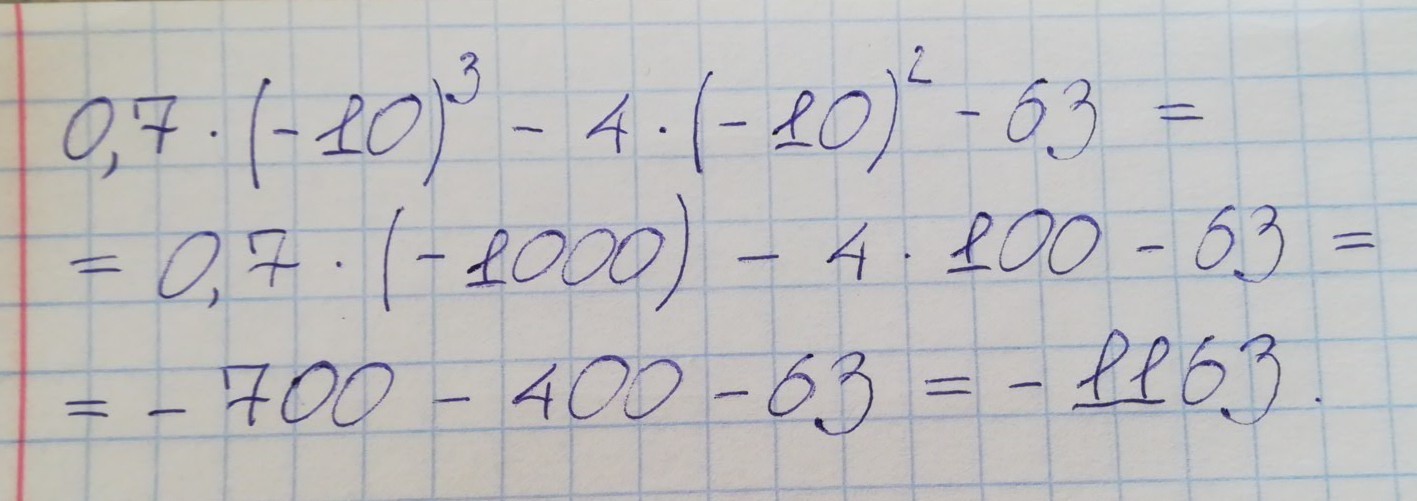 0,7 · (-10)³ - 4 · (-10)² - 63 =
= 0,7 · (-1000) - 4 · 100 - 63 =
= - 700 - 400 - 63 = - 1163.